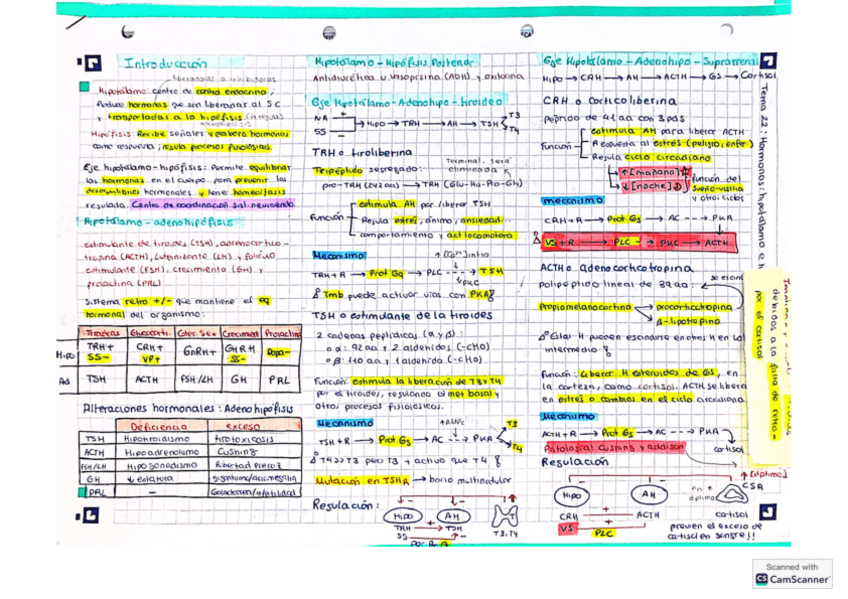 Introducción
liberadoras o inhibidoras
Hipotálamo: centro de control endocrino,
produce hormonas que son liberadas al SC
y transportadas a la hipófisis
Hipófisis: Recibe señales y elabora hormonas
como respuesta; regula procesos fisiológicos.
Eje hipotálamo-hipófisis: Permite equilibrar
las hormonas en el cuerpo para prevenir los
desequilibrios hormonales y tener homeostasis
regulada. Centro de coordinación sist. neuroendo
Hipotálamo - adenohipófisis
estimulante de tiroides (TSH), adrenocortico-
tropina (ACTH), luteinizante (LH) y folículo
estimulante (FSH), crecimiento (GH) y
prolactina (PRL)
Sistema retro +/- que mantiene el eq
hormonal del organismo:
Tiroideas Glucocorti. Gster. Sex Crecimient Prolactina
Hipo TRH+ SS- CRH+ VP+ GnRH+ GHRH SS- Dopa-
Ad TSH ACTH FSH/LH GH PRL
Alteraciones hormonales: Adenohipófisis
Deficiencia exceso
TSH Hipotiroidismo tirotoxicosis
ACTH Hipoadrenalismo Cushing
FSH/LH Hipogonadismo Pubertad Precoz
GH ↓ estatura gigantismo/acromegalia
PRL - Galactorrea/infertilidad
Hipotálamo - Hipófisis Posterior
Antidiurética u vasopresina (ADH) y oxitocina
Eje Hipotálamo-Adenohipo-tiroideo
NA +
SS - → Hipo → TRH → AH → TSH T3 T4
TRH o tiroliberina
Tripéptido segregado: Terminal, será eliminada
pro-TRH (242aa) → TRH (Glu-His-Pro-Gly)
estimula AH por liberar TSH
Función Regula estrés, ánimo, ansiedad...
comportamiento y act locomotora
Mecanismo ↑[Ca²⁺]intra
TRH+R → Prot Gq → PLC ---→ TSH
↓PKC
Tmb puede activar vías con PKA
TSH o estimulante de la tiroides
2 cadenas peptídicas (α y β):
α: 92aa y 2 aldehídos (-CHO)
β: 110aa y 1 aldehído (-CHO)
Función: estimula la liberación de T3 y T4
por el tiroides, regulando el met basal y
otros procesos fisiológicos.
Mecanismo ↑AMPc
TSH+R → Prot Gs → AC ---→ PKA T3 T4
T4 >> T3 pero T3 + activa que T4
Mutación en TSHR → bocio multinodular
Regulación:
Hipo AH
TRH + TSH
SS -
T3, T4
Eje Hipotálamo - Adenohipo - Suprarrenal
Hipo → CRH → AH → ACTH → GS → Cortisol
CRH o corticoliberina
Péptido de 41 aa con 3 pas
estimula AH para liberar ACTH
función Respuesta al estrés (peligro, enfer)
Regula ciclo circadiano
↑[mañana]
↓[noche]
función del
sueño-vigilia
y otros ciclos
mecanismo
CRH+R → Prot Gs → AC --→ PKA
VS+R → PLC → PKC → ACTH
ACTH o adenocorticotropina
polipéptido lineal de 39 aa:
Propiomelanocortina → procorticotropina
β-lipotropina
Estas H pueden escindirse en otras H en lob
intermedio
función: Liberar H esteroides de GS, en
la corteza, como cortisol. ACTH se libera
en estrés o cambios en el ciclo circadiano.
Mecanismo
ACTH+R → Prot Gs → AC --→ PKA
cortisol
Patologías Cushing y addison
Regulación
↑[óptimo]
Hipo AH CSR
CRH + ACTH cortisol
VS + PLC
previen el exceso de
cortisol en sangre!!
Tema 22: Hormonas: hipotálamo e h
debidos a la falta de retro-
por el cortisol
Scanned with
CS CamScanner